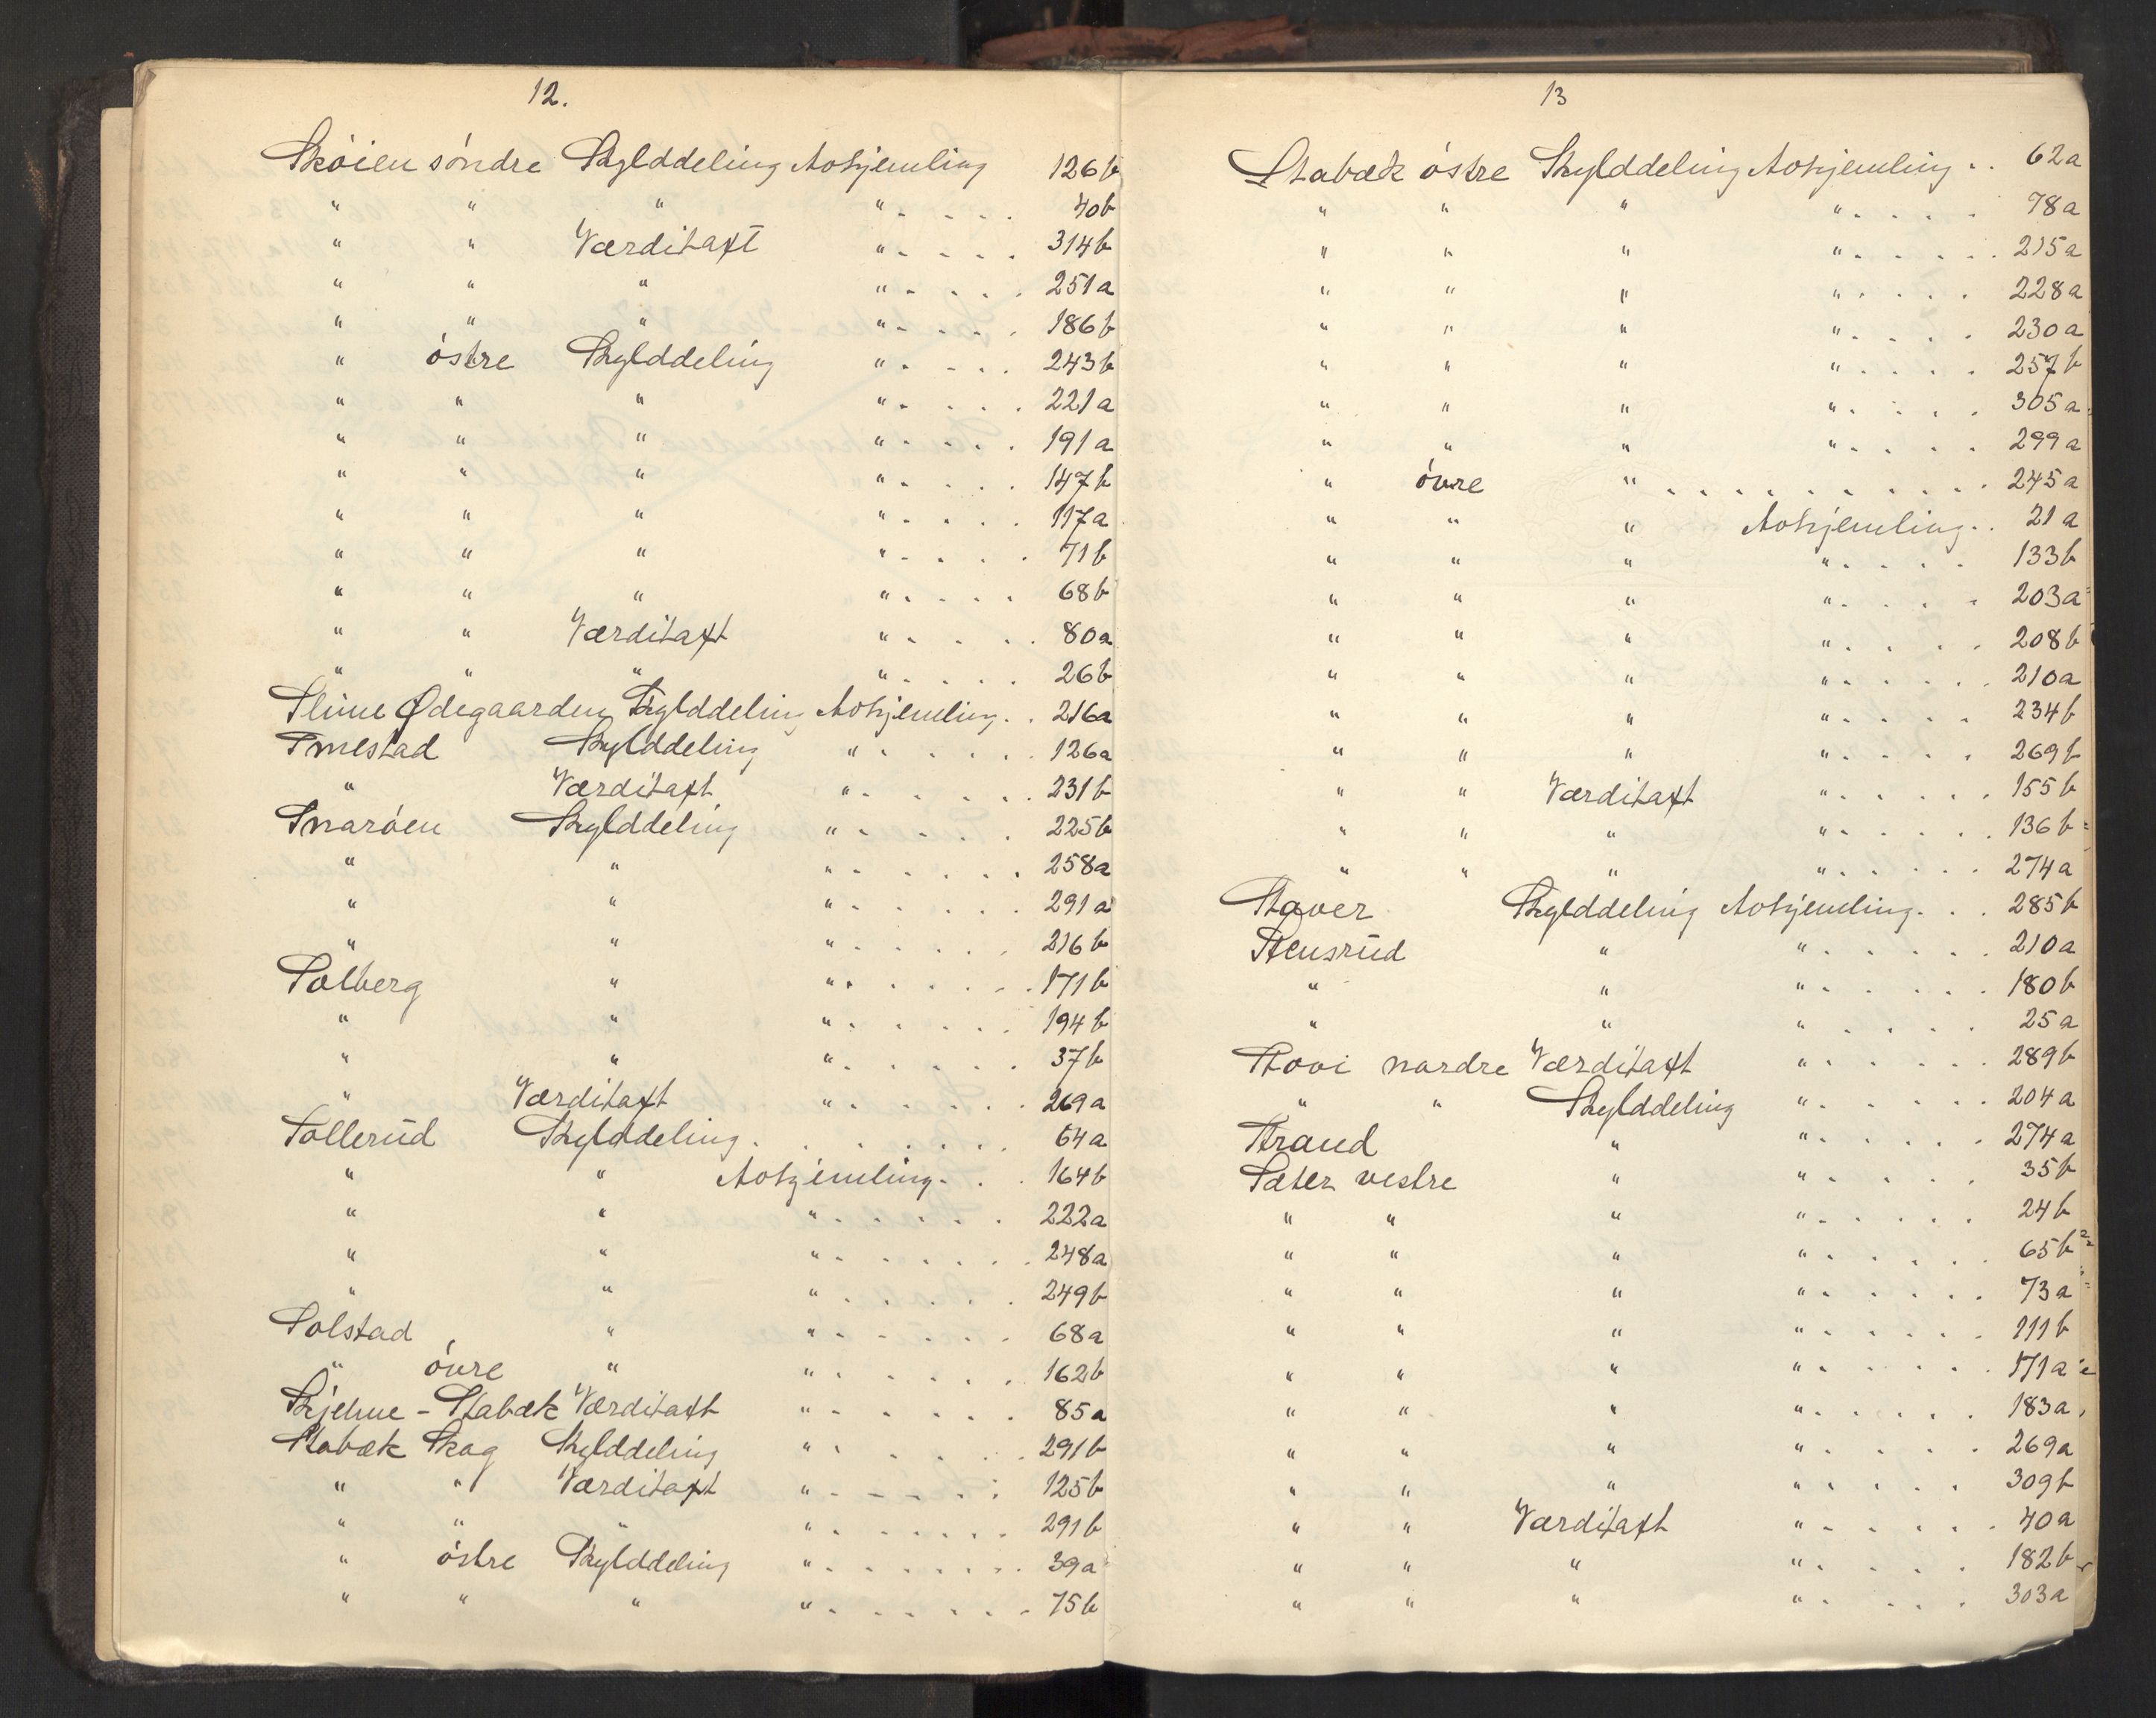 12.
Skøien søndre Skylddeling Avhjemling 126b
" " " " 40b
" " Værditaxt " 314b
" " " " 251a
" " " " 186b
" østre Skylddeling " 243b
" " " " 221a
" " " " 191a
" " " " 147b
" " " " 117a
" " " " 71b
" " " " 68b
" " Værditaxt " 80a
" " " " 26b
Slime Ødegaarden Skylddeling Avhjemling. . 216a
Smestad Skylddeling " 126a
" Værditaxt " 231b
Snarøen Skylddeling " 225b
" " " 258a
" " " 291a
" " " 216b
Solberg " " 171b
" " " 194b
" " " 37b
" Værditaxt " 269a
Sollerud Skylddeling. 64a
" " Avhjemling. 164b
" " " 222a
" " " 248a
" " " 249b
Solstad " " 68a
" øvre " " 162b
Skjelme - Stabæk Værditaxt " 85a
Stabæk Skog Skylddeling " 291b
" " Værditaxt " 125b
" " " " 291b
" østre Skylddeling " 39a
" " " " 75b
13
Stabæk østre Skylddeling Avhjemling . . 62a
" " " " 78a
" " " " 215a
" " " " 228a
" " " " 230a
" " " " 257b
" " " " 305a
" " " " 299a
" øvre " 245a
" " " Avhjemling. . 21a
" " " " 133b
" " " " 203a
" " " " 208b
" " " " 210a
" " " " 234b
" " " " 269b
" " Værditaxt " 155b
" " " " 136b
" " " " 274a
Staver Skylddeling Avhjemling. . . 285b
Stensrud " " 210a
" " " 180b
" " " 25a
Stovi nordre Værditaxt " 289b
" " Skylddeling " 204a
Strand " " 274a
Sæter vestre " " 35b
" " " " 24b
" " " " 65b
" " " " 73a
" " " " 111b
" " " " 171a
" " " " 183a
" " " " 269a
" " " " 309b
" " Værditaxt " 40a
" " " " 182b
" " " " 303a